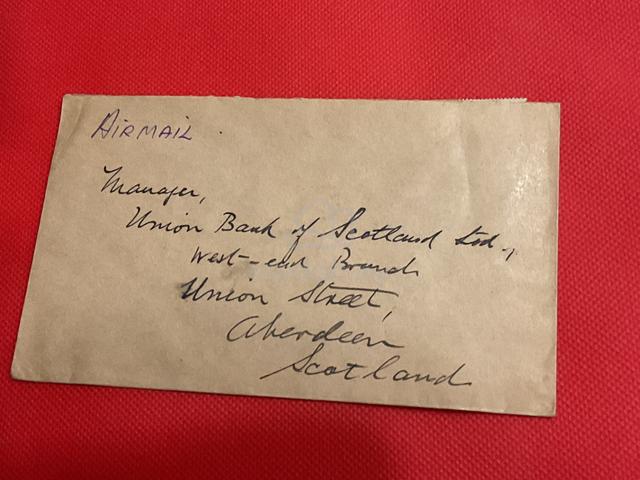 AIRMAIL
Manager,
Union Bank of Scotland Ltd.,
West-end Branch
Union Street,
Aberdeen
Scotland